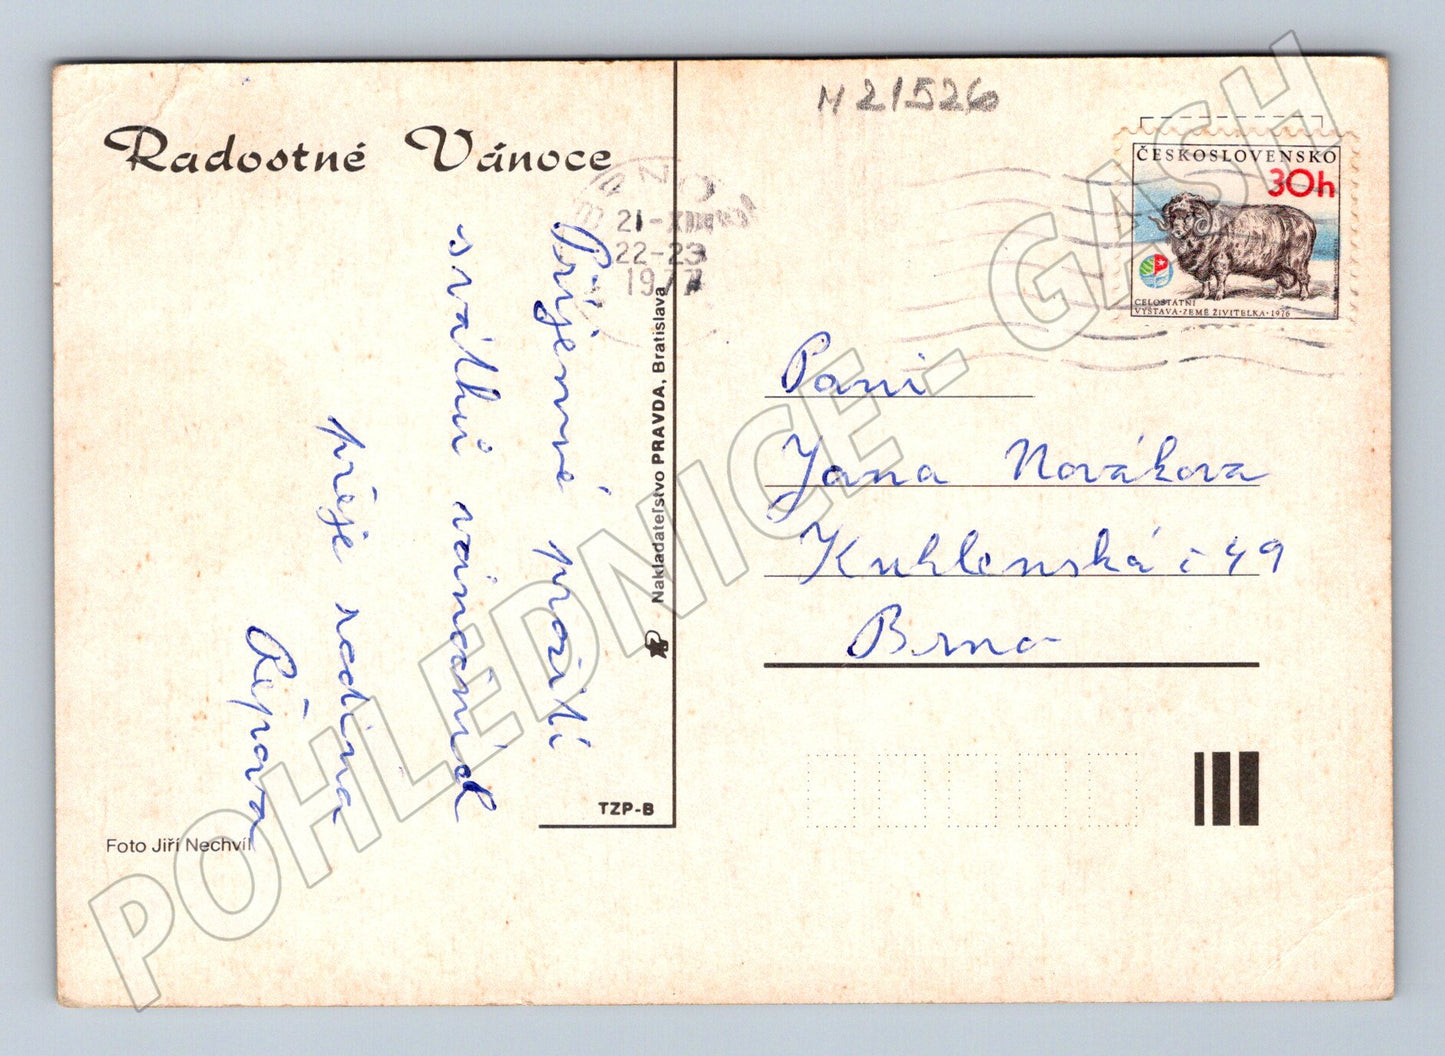 Radostné Vánoce
Příjemné prožití
svátků vánočních
přeje rodina
Řepova
Foto Jiří Nechvíl
Nakladateľstvo PRAVDA, Bratislava
TZP-B
BRNO
21-XII
22-23
1977
N 21526
ČESKOSLOVENSKO
30h
CELOSTÁTNÍ
VÝSTAVA·ZEMĚ ŽIVITELKA·1976
Paní
Jana Nováková
Kuhlenská č 49
Brno
POHLEDNICE - GASH